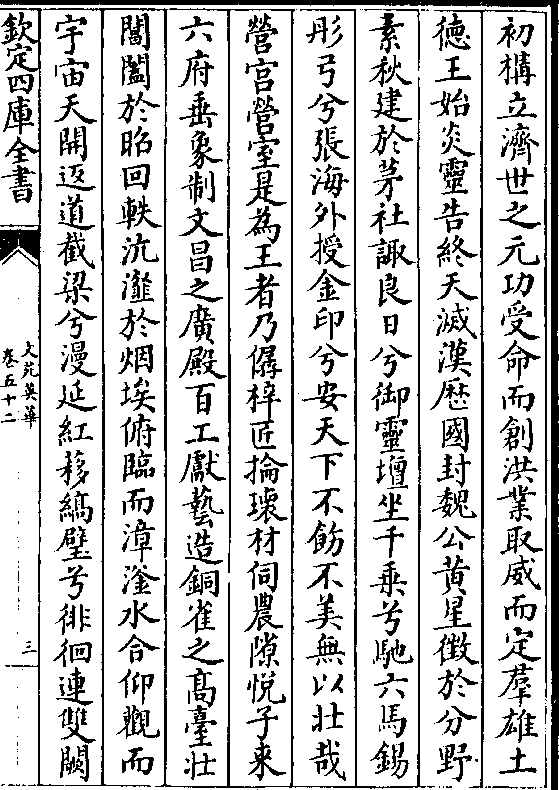 初構立濟世之元功受命而創洪業取威而定羣雄土
德王始炎靈告終天滅漢歴國封魏公黄星徴於分野
素秋建於茅社諏良日兮御靈壇坐千乘兮馳六馬錫
彤弓兮張海外授金印兮安天下不飭不美無以壯哉
營宫營室是為王者乃僝梓匠掄瓌材伺農隙悦子来
六府垂象制文昌之廣殿百工獻藝造銅雀之髙臺壯
閶闔於昭回軼沆瀣於烟埃俯臨而漳滏水合仰觀而
宇宙天開返道截梁兮漫延紅移縞壁兮徘徊連雙闕
欽定四庫全書
文苑英華
卷五十二
三